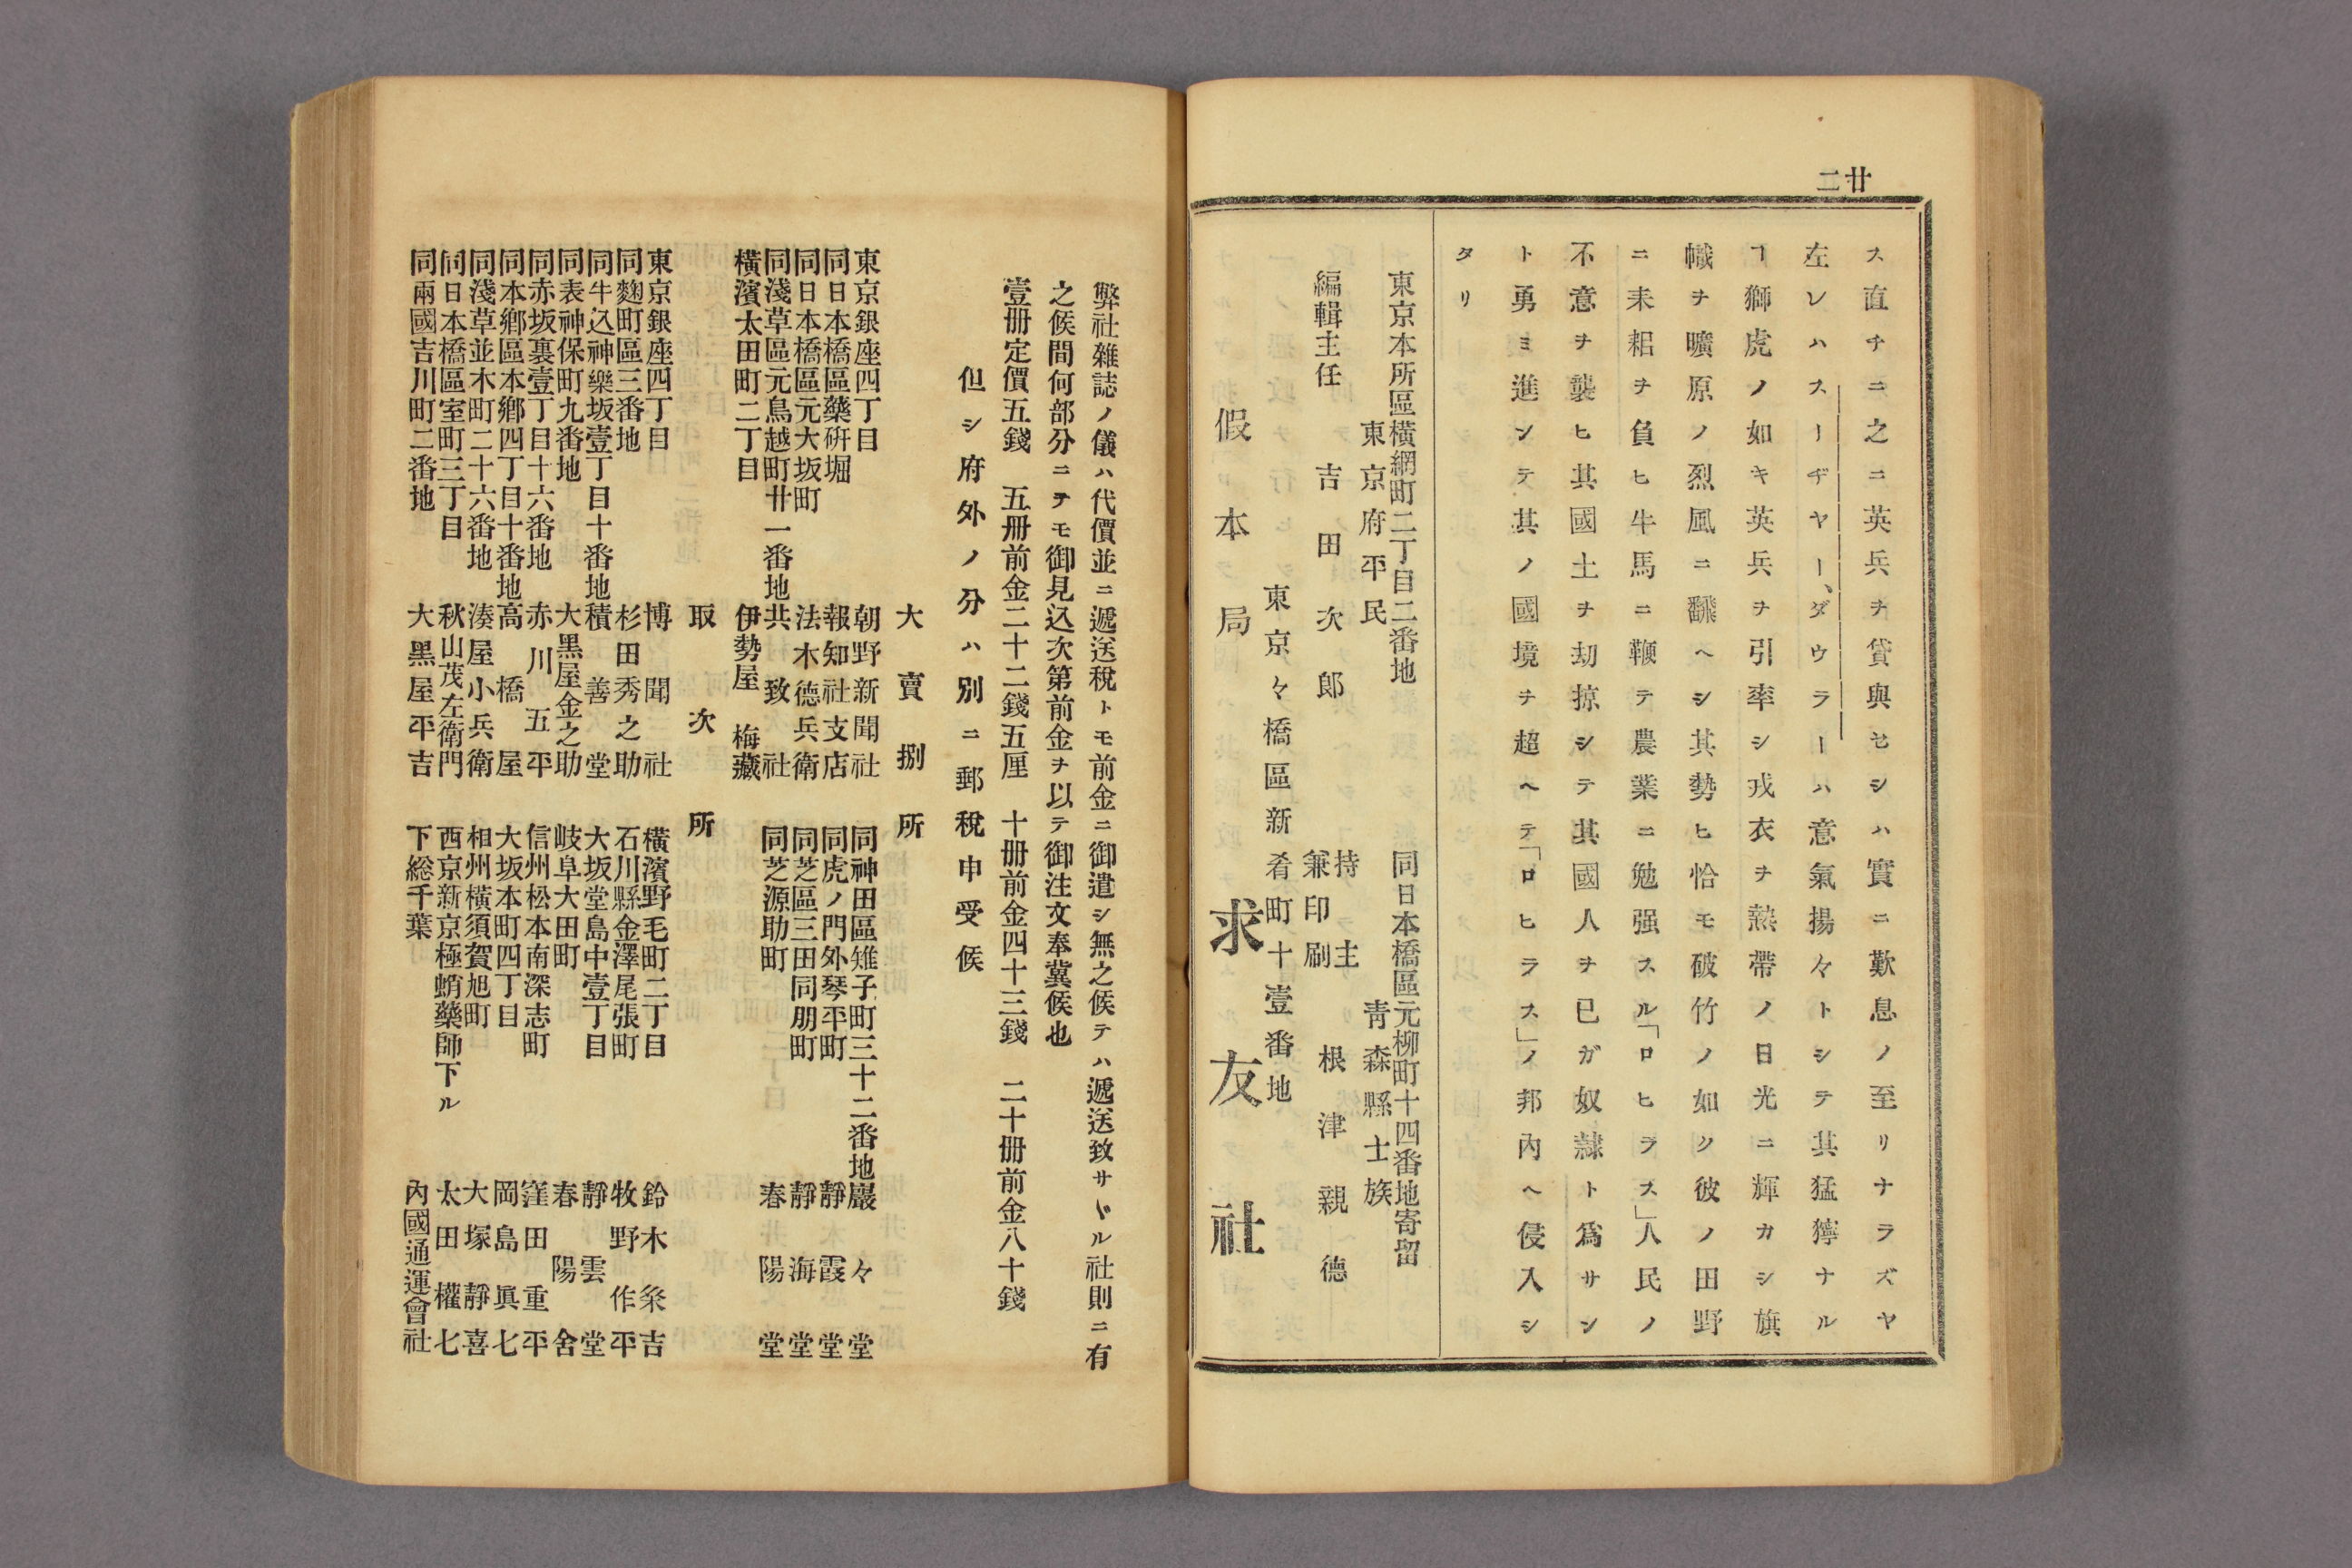 廿二
ス直チニ之ニ英兵ヲ貸與セシハ實ニ歎息ノ至リナラズヤ
左レハスーヂヤー、ダウラーハ意氣揚々トシテ其猛獰ナル
ヿ獅虎ノ如キ英兵ヲ引率シ戎衣ヲ熱帶ノ日光ニ輝カシ旗
幟ヲ曠原ノ烈風ニ飜ヘシ其勢ヒ恰モ破竹ノ如ク彼ノ田野
ニ耒耜ヲ負ヒ牛馬ニ鞭テ農業ニ勉强スル「ロヒラス」人民ノ
不意ヲ襲ヒ其國土ヲ刧掠シテ其國人ヲ已ガ奴隷ト爲サン
ト勇ミ進ンテ其ノ國境ヲ超ヘテ「ロヒラス」ノ邦內ヘ侵入シ
タリ
東京本所區橫網町二丁目二番地
東京府平民
編輯主任 吉田次郎
同日本橋區元柳町十四番地寄留
靑森縣士族
持主
兼印刷 根津親德
東京々橋區新肴町十壹番地
假本局 求友社
弊社雜誌ノ儀ハ代價並ニ遞送稅トモ前金ニ御遣シ無之候テハ遞送致サヾル社則ニ有
之候間何部分ニテモ御見込次第前金ヲ以テ御注文奉冀候也
壹册定價五錢 五册前金二十二錢五厘 十册前金四十三錢 二十册前金八十錢
但シ府外ノ分ハ別ニ郵稅申受候
大賣捌所
東京銀座四丁目 朝野新聞社 同神田區雉子町三十二番地 巖々堂
同日本橋區藥硏堀 報知社支店 同虎ノ門外琴平町 靜霞堂
同日本橋區元大坂町 法木德兵衛 同芝區三田同朋町 靜海堂
同淺草區元鳥越町廿一番地 共致社 同芝源助町 春陽堂
橫濱太田町二丁目 伊勢屋梅藏
取次所
東京銀座四丁目 博聞社 橫濱野毛町二丁目 鈴木粂吉
同麴町區三番地 杉田秀之助 石川縣金澤尾張町 牧野作平
同牛込神樂坂壹丁目十番地 積善堂 大坂堂島中壹丁目 靜雲堂
同表神保町九番地 大黑屋金之助 岐阜大田町 春陽舍
同赤坂裏壹丁目十六番地 赤川五平 信州松本南深志町 窪田重平
同本鄕區本鄕四丁目十番地 高橋屋 大坂本町四丁目 岡島眞七
同淺草並木町二十六番地 湊屋小兵衛 相州橫須賀旭町 大塚靜喜
同日本橋區室町三丁目 秋山茂左衛門 西京新京極蛸藥師下ル 太田權七
同兩國吉川町二番地 大黑屋平吉 下総千葉 內國通運會社